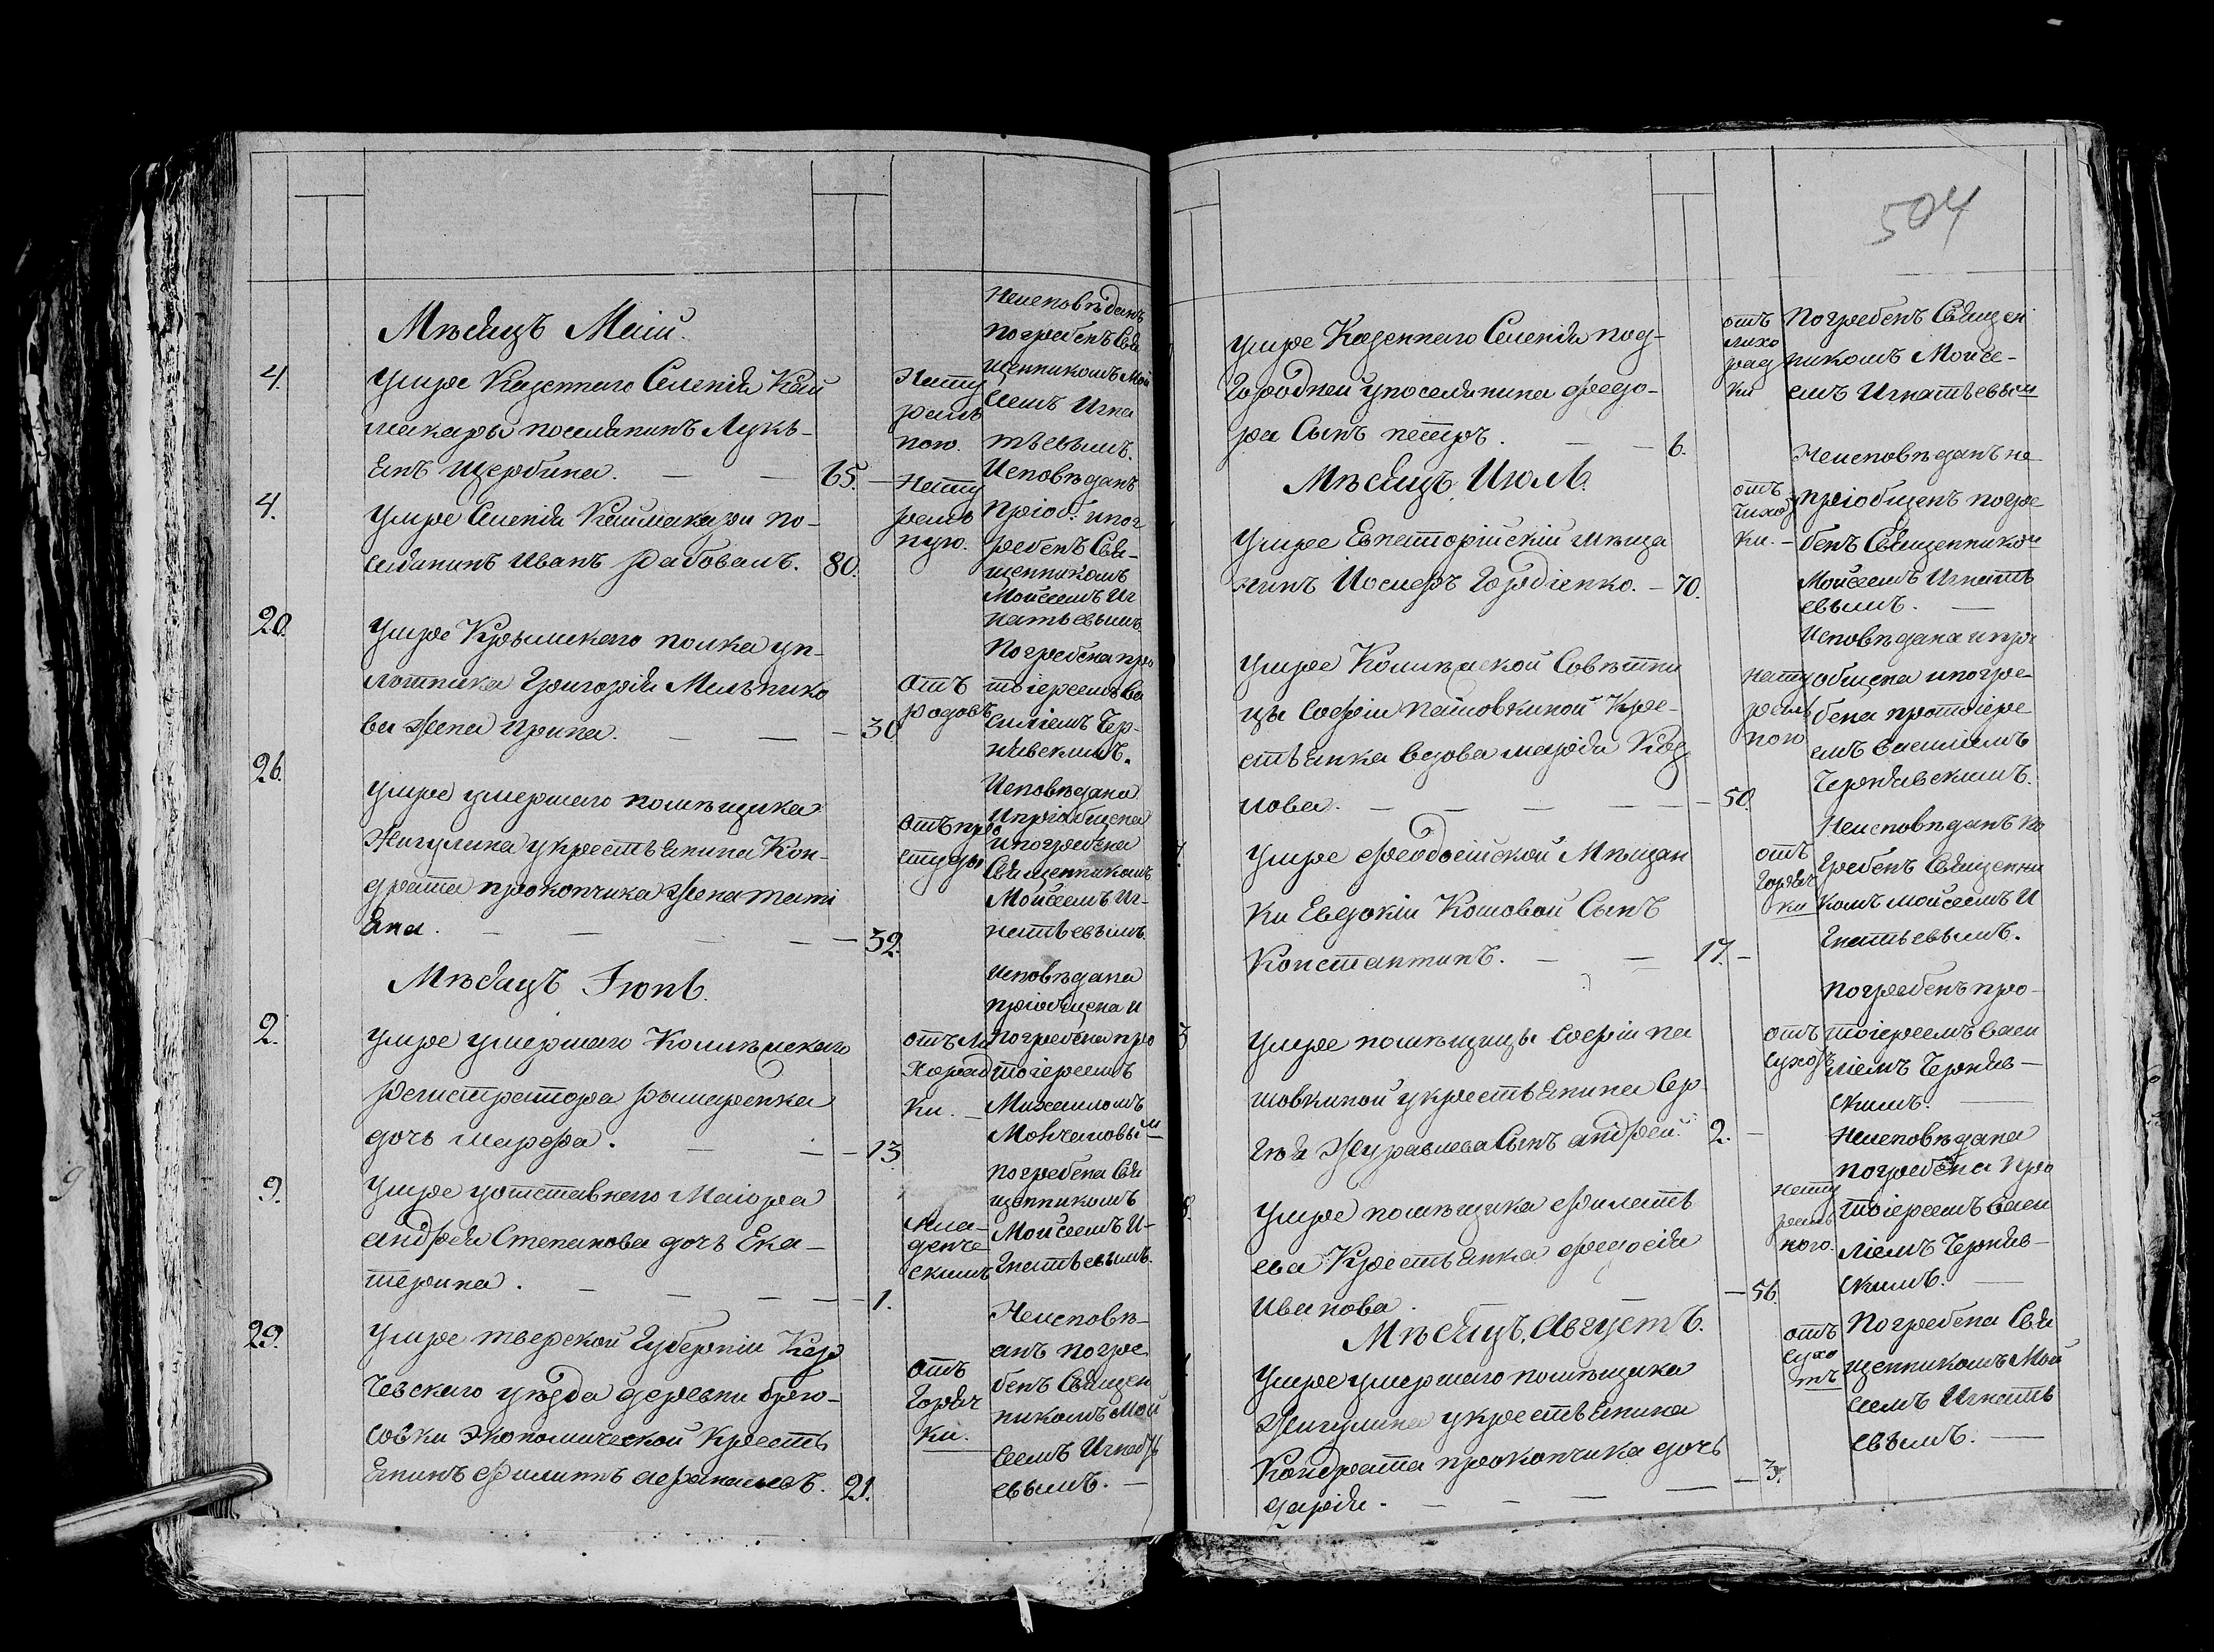 Мѣсяцъ Маій.
4.
Умре Казеннаго Селенія Кай
макары поселянинъ Лукь-
янъ Щербина. — — 65.
Нату
раль
ною.
Неисповѣданъ
погребенъ Свя
щенникомъ Мой
сеемъ Игна
тьевымъ.
4.
Умре Селенія Каймакары по-
селянинъ Иванъ 80.
Нату
раль
ную.
Исповѣданъ
пріоб: и пог
ребенъ Свя-
щенникомъ
Мойсеемъ Иг
натьевымъ.
20.
Умре Крымскаго полка ун-
лотника Григорія Мельнико
ва Жена Ирина. — — — 30
отъ
родовъ
Погребена про
тоіереемъ Ва
силіемъ Чер-
нявскимъ.
26.
Умре умершаго помѣщика
Жигулина укрестьянина Кон-
драта прокопчика Жена тати
яна. — — — — 32.
отъ про
студы
Исповѣдана
и пріобщена
и погребена
Священникомъ
Мойсеемъ Иг-
натьевымъ.
Мѣсяцъ Іюнь.
2.
Умре умершаго Коллѣжскаго
регистратора рымаренка
дочь марфа. — — — 13
отъ Ли
хорад
ки. —
Исповѣдана
пріобщена и
погребена про
тоіереемъ
Михаиломъ
9.
Умре уотставнаго Маіора
андрея Степанова дочь Ека-
терина. — — — — 1.
мла-
денче
скимъ
погребена Свя
щенникомъ
Мойсеемъ И-
гнатьевымъ.
29.
Умре тверской Губерніи Кор
чевскаго уѣзда деревни
совки экономической кресть
янинъ Филиппъ афанасьевъ. 21.
отъ
Горяч
ки.
Неисповѣ-
анъ погре
бенъ Священ
никомъ Мой
сеемъ Игнать
евымъ. —
504
Умре Казеннаго Селенія под-
городней упоселянина федо-
ра Сынъ петръ. — — 6.
отъ
лихо
рад
ки
Погребенъ Священ
никомъ Мойсе-
емъ Игнатьевым
Мѣсяцъ, Июль.
Умре Евпаторійскій мѣща
нинъ Иосифъ Гордіенко. — 70.
отъ
ки. —
Неисповѣданъ не
пріобщенъ погре
бенъ Священником
Мойсеемъ Игнать
евымъ. —
Умре Коллѣжской Совѣтни
цы Софіи Пашовкиной Кре-
стьянка вдова марія Коз
лова. — — — — — 50.
нату
раль
ною
Исповѣдана и прі
общена и погре-
бена протоіере
емъ Василіемъ
Чернявскимъ.
Умре феодосійской Мѣщан
ки Евдокіи Кошовой Сынъ
Константинъ. — — 17. —
отъ
Горяч
ки
Неисповѣданъ по
гребенъ Священни
комъ мойсеемъ И
гнатьевымъ.
3
Умре помѣщицы Софіи па
шовкиной укрестьянина Сер
гѣя Журавлева Сынъ андрей. 2. —
отъ
Сухот
погребенъ про-
тоіереемъ Васи
ліемъ Черняв-
скимъ. —
8.
Умре помѣщика Филать
ева Крестьянка федосія
Иванова. — 56.
нату
раль
ного.
Неисповѣдана
погребена про
тоіереемъ Васи
ліемъ Черняв-
скимъ. —
Мѣсяцъ, Августъ.
Умре умершаго помѣщика
Жигулина укрестьянина
Кондрата прокопчика дочь
дарія. — — — — 3.
отъ
Сухо
тъ
Погребена Свя
щенникомъ Мой
сеемъ Игнать
евымъ. —